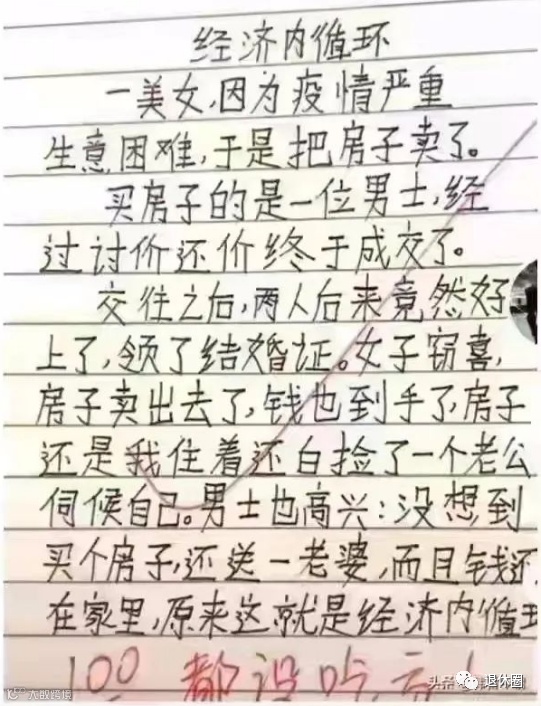 经济内循环
一美女,因为疫情严重
生意困难,于是把房子卖了。
买房子的是一位男士,经
过讨价还价终于成交了。
交往之后,两人后来竟然好
上了,领了结婚证。女子窃喜,
房子卖出去了,钱也到手了房子
还是我住着还白捡了一个老公
伺候自己。男士也高兴:没想到
买个房子,还送一老婆,而且钱还
在家里,原来这就是经济内循环
100 都没吃亏!
退休圈